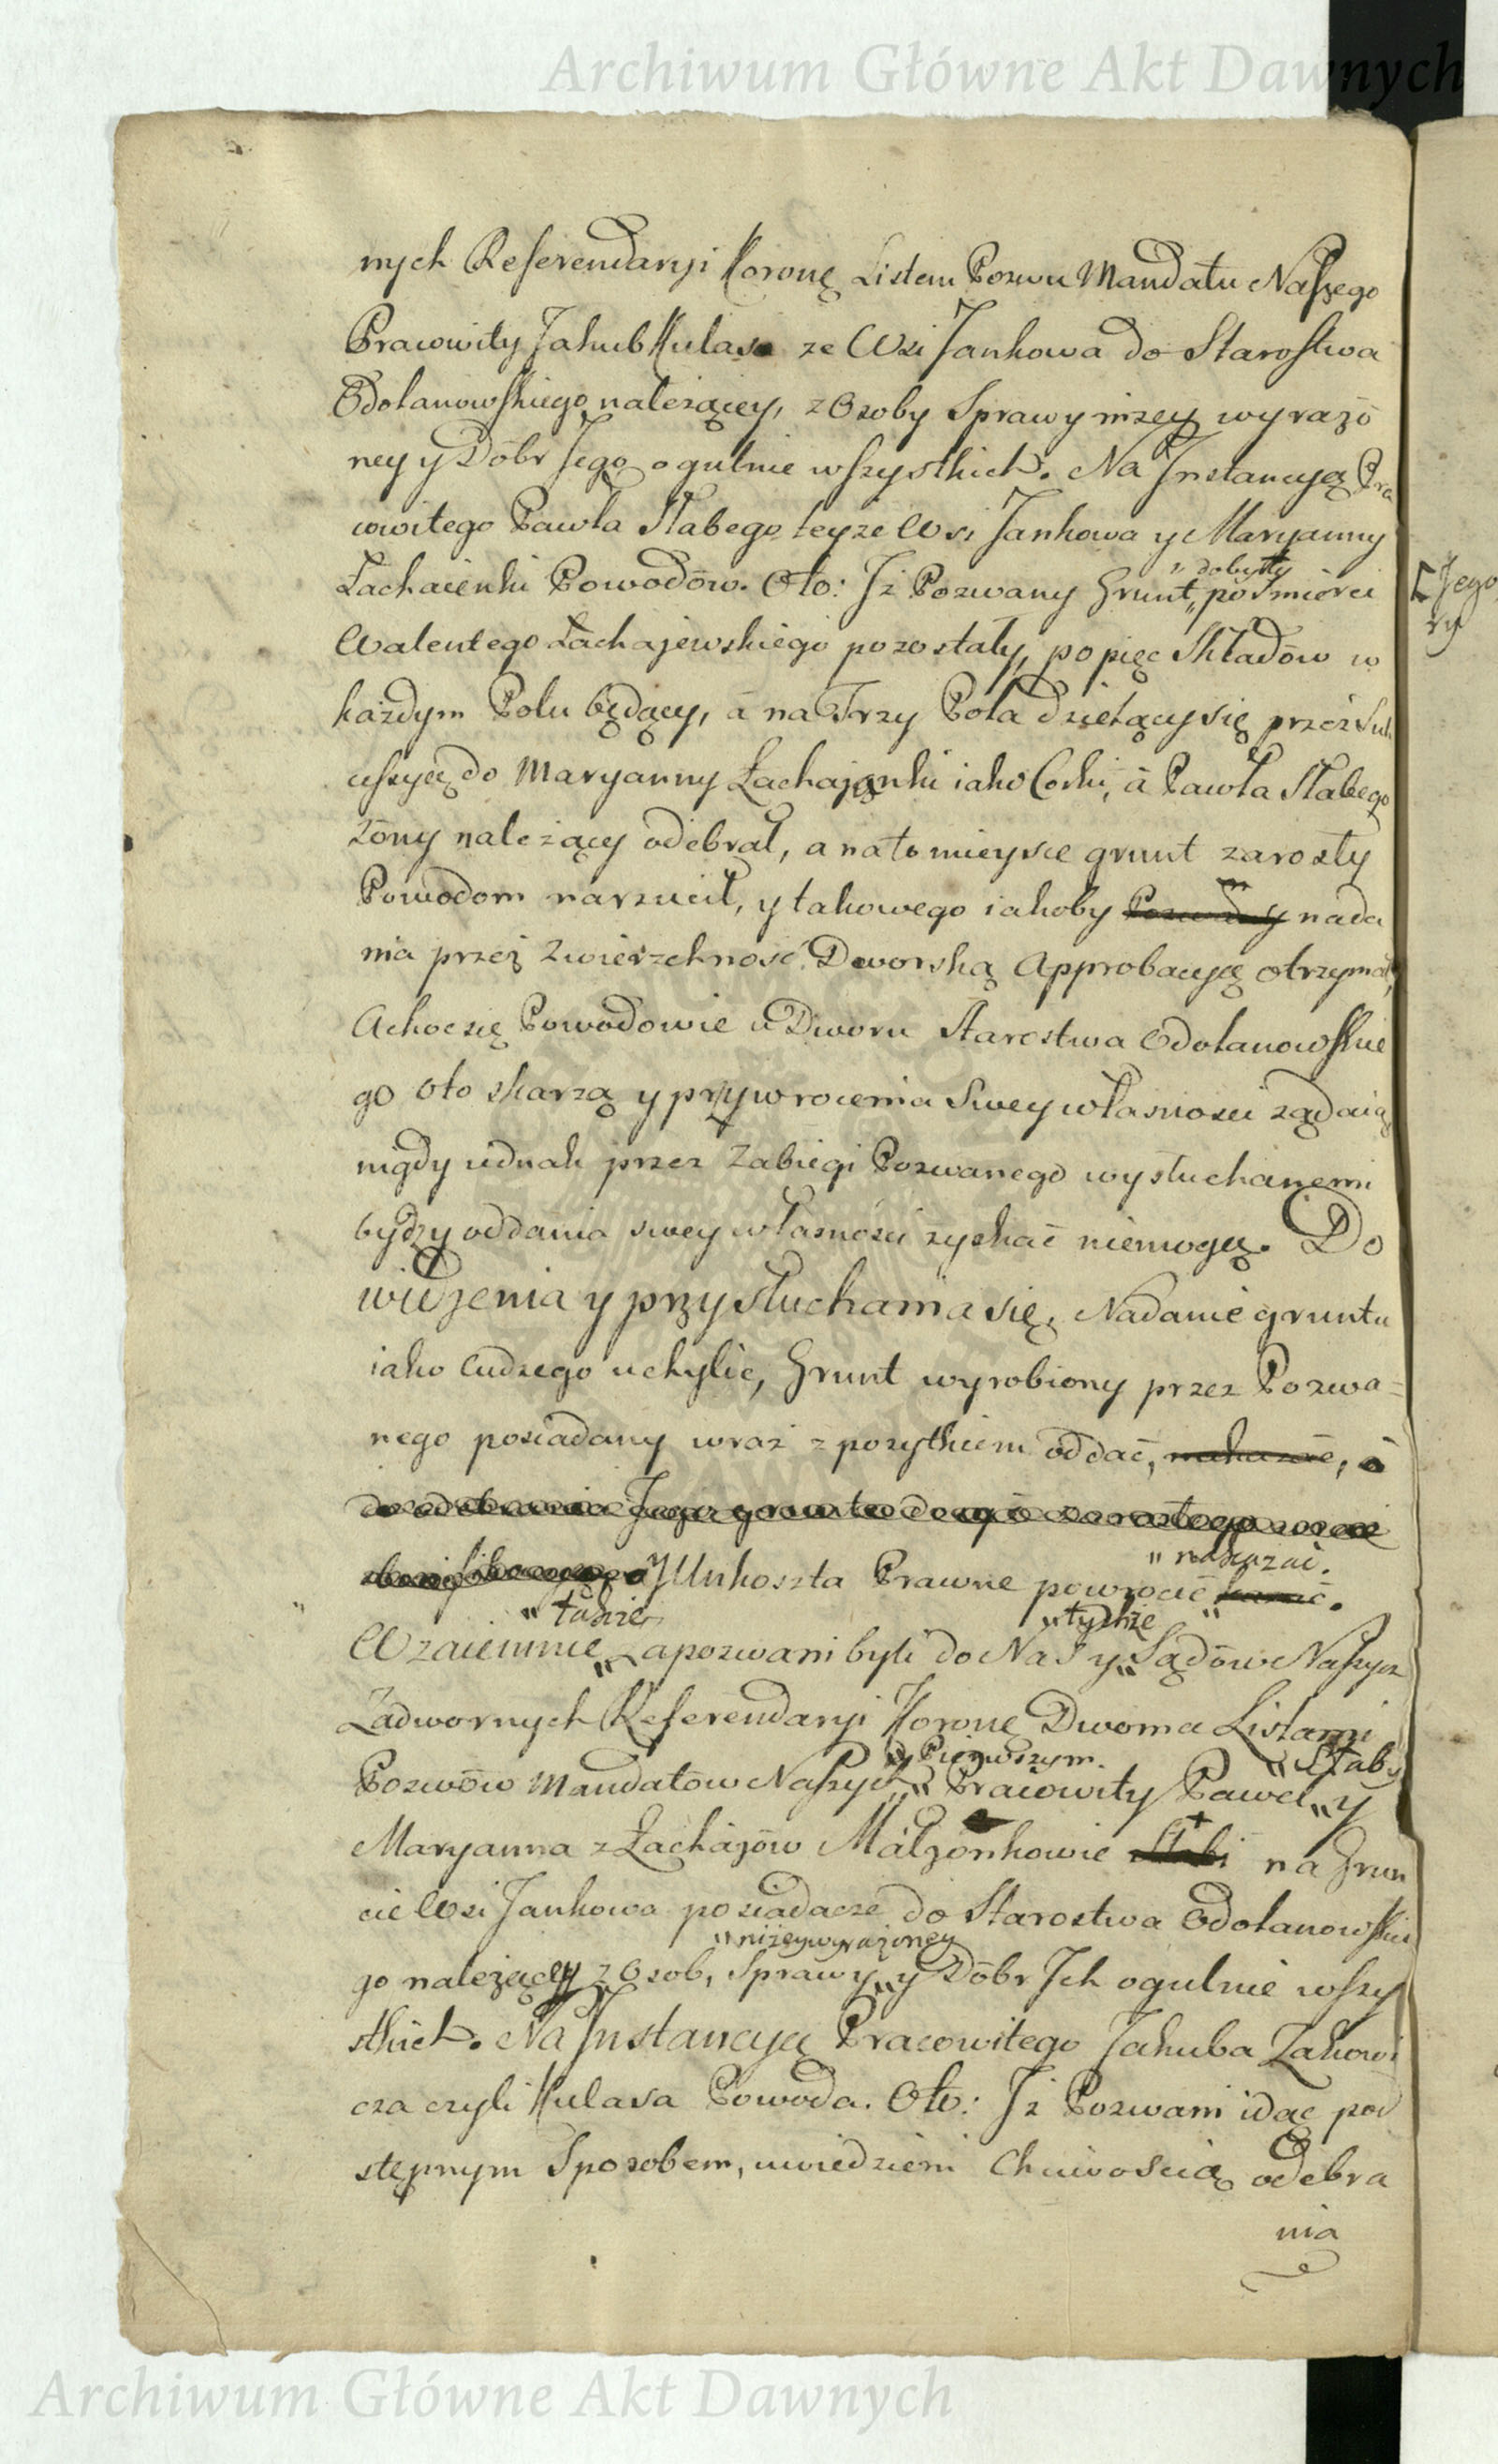 Archiwum Główne Akt Dawnych
nych Referendaryi Koronę Listem Pozwu Mandatu Naszego
Pracowity Jakub Kulas ze Wsi Jankowa do Starostwa
Odolanowskiego należącey, z Osoby Sprawy niżey wyrażo
ney y Dóbr Jego ogulnie wszystkich. Na Instancyą Pra
cowitego Pawła Słabego teyże Wsi Jankowa y Maryanny
Łachaienki Powodów. Oto: Iż Pozwany Grunt „ dobyty po śmierci
Walentego Łachajewskiego pozostały, po pięć Składów w
każdym Polu będący, á na Trzy Pola dzielący się przez Suk
cessyą do Maryanny Łachajanki iako Corki, á Pawła Słabego
Żony należący odebrał, a nato mieysce grunt zarosły
Powodom narzucił, y takowego iakoby nada
nia przez Zwierzchność Dworską Approbacyą otrzymał,
A choc się Powodowie u Dworu Starostwa Odolanowskie
go oto skarżą y przywrocenia Swey własności żądaią
nigdy iednak przez Zabiegi Pozwanego wysłuchanemi
bydź y oddania swey własności zyskać niemogą. Do
widzenia y przysłuchania się, Nadanie gruntu
iako Cudzego uchylić, Grunt wyrobiony przez Pozwa=
nego posiadany wraz z pożytkiem oddać, nakazać, á
do odebrania Jego gruntu
y Unkoszta Prawne powrocić „ nakazać.
Wzaiemnie „ tudzież zapozwani byli do Nas y „ tychże Sądów Naszych
Zadwornych Referendaryi Koronę Dwoma Listami
Pozwów Mandatów Naszych „ Pierwszym. Pracowity Paweł „ Słaby y
Maryanna z Łachajów Małżonkowie Słabi na Grun
cie Wsi Jankowa posiadacze do Starostwa Odolanowskie
go należącey z Osob, Sprawy „ niżeywyrażoney y Dóbr Ich ogulnie wszy
stkich. Na Instancyą Pracowitego Jakuba Zakowi
cza czyli Kulasa Powoda. Oto: Iż Pozwani idąc pod
stępnym Sposobem, uwiedzieni Chciwością odebra
nia
Jego
Archiwum Główne Akt Dawnych